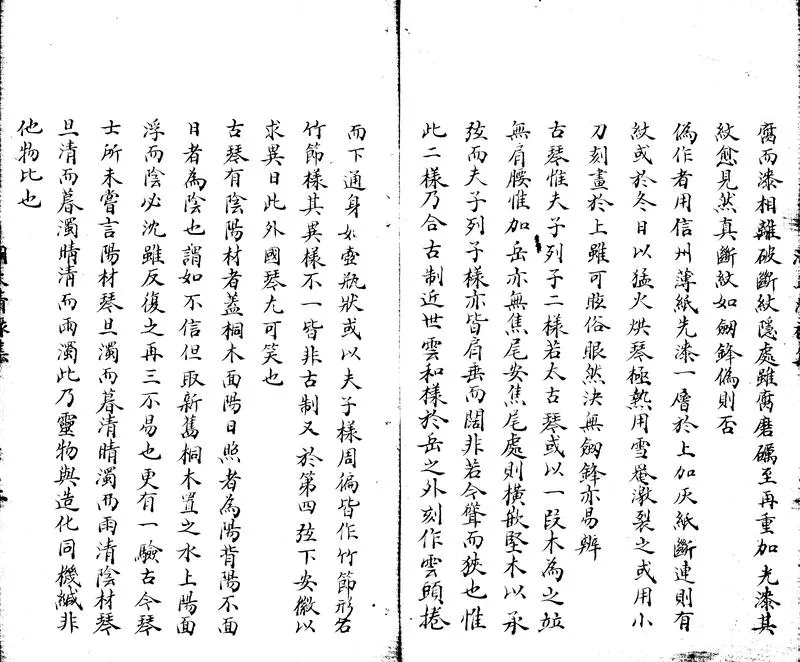 腐而漆相離破斷紋隱處雖腐磨礪至再重加光漆其
紋愈見然真斷紋如劒鋒偽則否
偽作者用信州薄紙先漆一層於上加灰紙斷連則有
紋或於冬日以猛火烘琴極熱用雪罨激裂之或用小
刀刻畫於上雖可眩俗眼然決無劒鋒亦易辨
古琴惟夫子列子二樣若太古琴或以一段木為之並
無肩腰惟加岳亦無焦尾安焦尾處則橫嵌堅木以承
弦而夫子列子樣亦皆肩垂而闊非若今聳而狹也惟
此二樣乃合古制近世雲和樣於岳之外刻作雲頭捲
而下通身如壺瓶狀或以夫子樣周徧皆作竹節形名
竹節樣其異樣不一皆非古制又於第四弦下安徽以
求異曰此外國琴尤可笑也
古琴有陰陽材者蓋桐木面陽日照者為陽背陽不面
日者為陰也謂如不信但取新舊桐木置之水上陽面
浮而陰必沈雖反復之再三不易也更有一驗古今琴
士所未嘗言陽材琴旦濁而暮清晴濁而雨清陰材琴
旦清而暮濁晴清而雨濁此乃靈物與造化同機緘非
他物比也